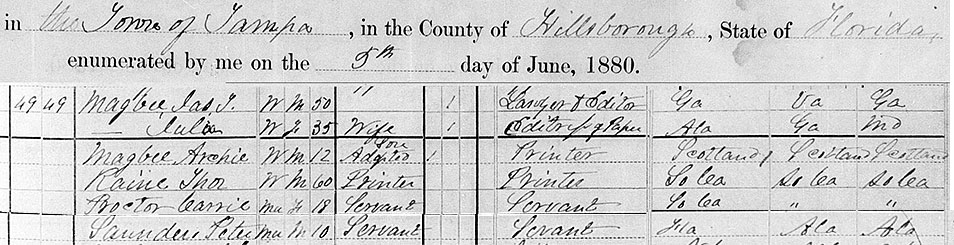 in the Town of Tampa, in the County of Hillsborough, State of Florida,
enumerated by me on the 5th day of June, 1880.
49 49 Magbee, Jas T. W M 50 " 1 Lawyer & Editor Ga Va Ga
— Julia W F 35 Wife 1 Editor of Paper Ala Ga Md
Magbee Archie W M 12 Adopted Son 1 Printer Scotland Scotland Scotland
Raine Thos W M 60 Printer Printer So Ca So Ca So Ca
Proctor Carrie Mu F 18 Servant Servant So Ca " "
Saunders Peter Mu M 10 Servant Servant Fla Ala Ala